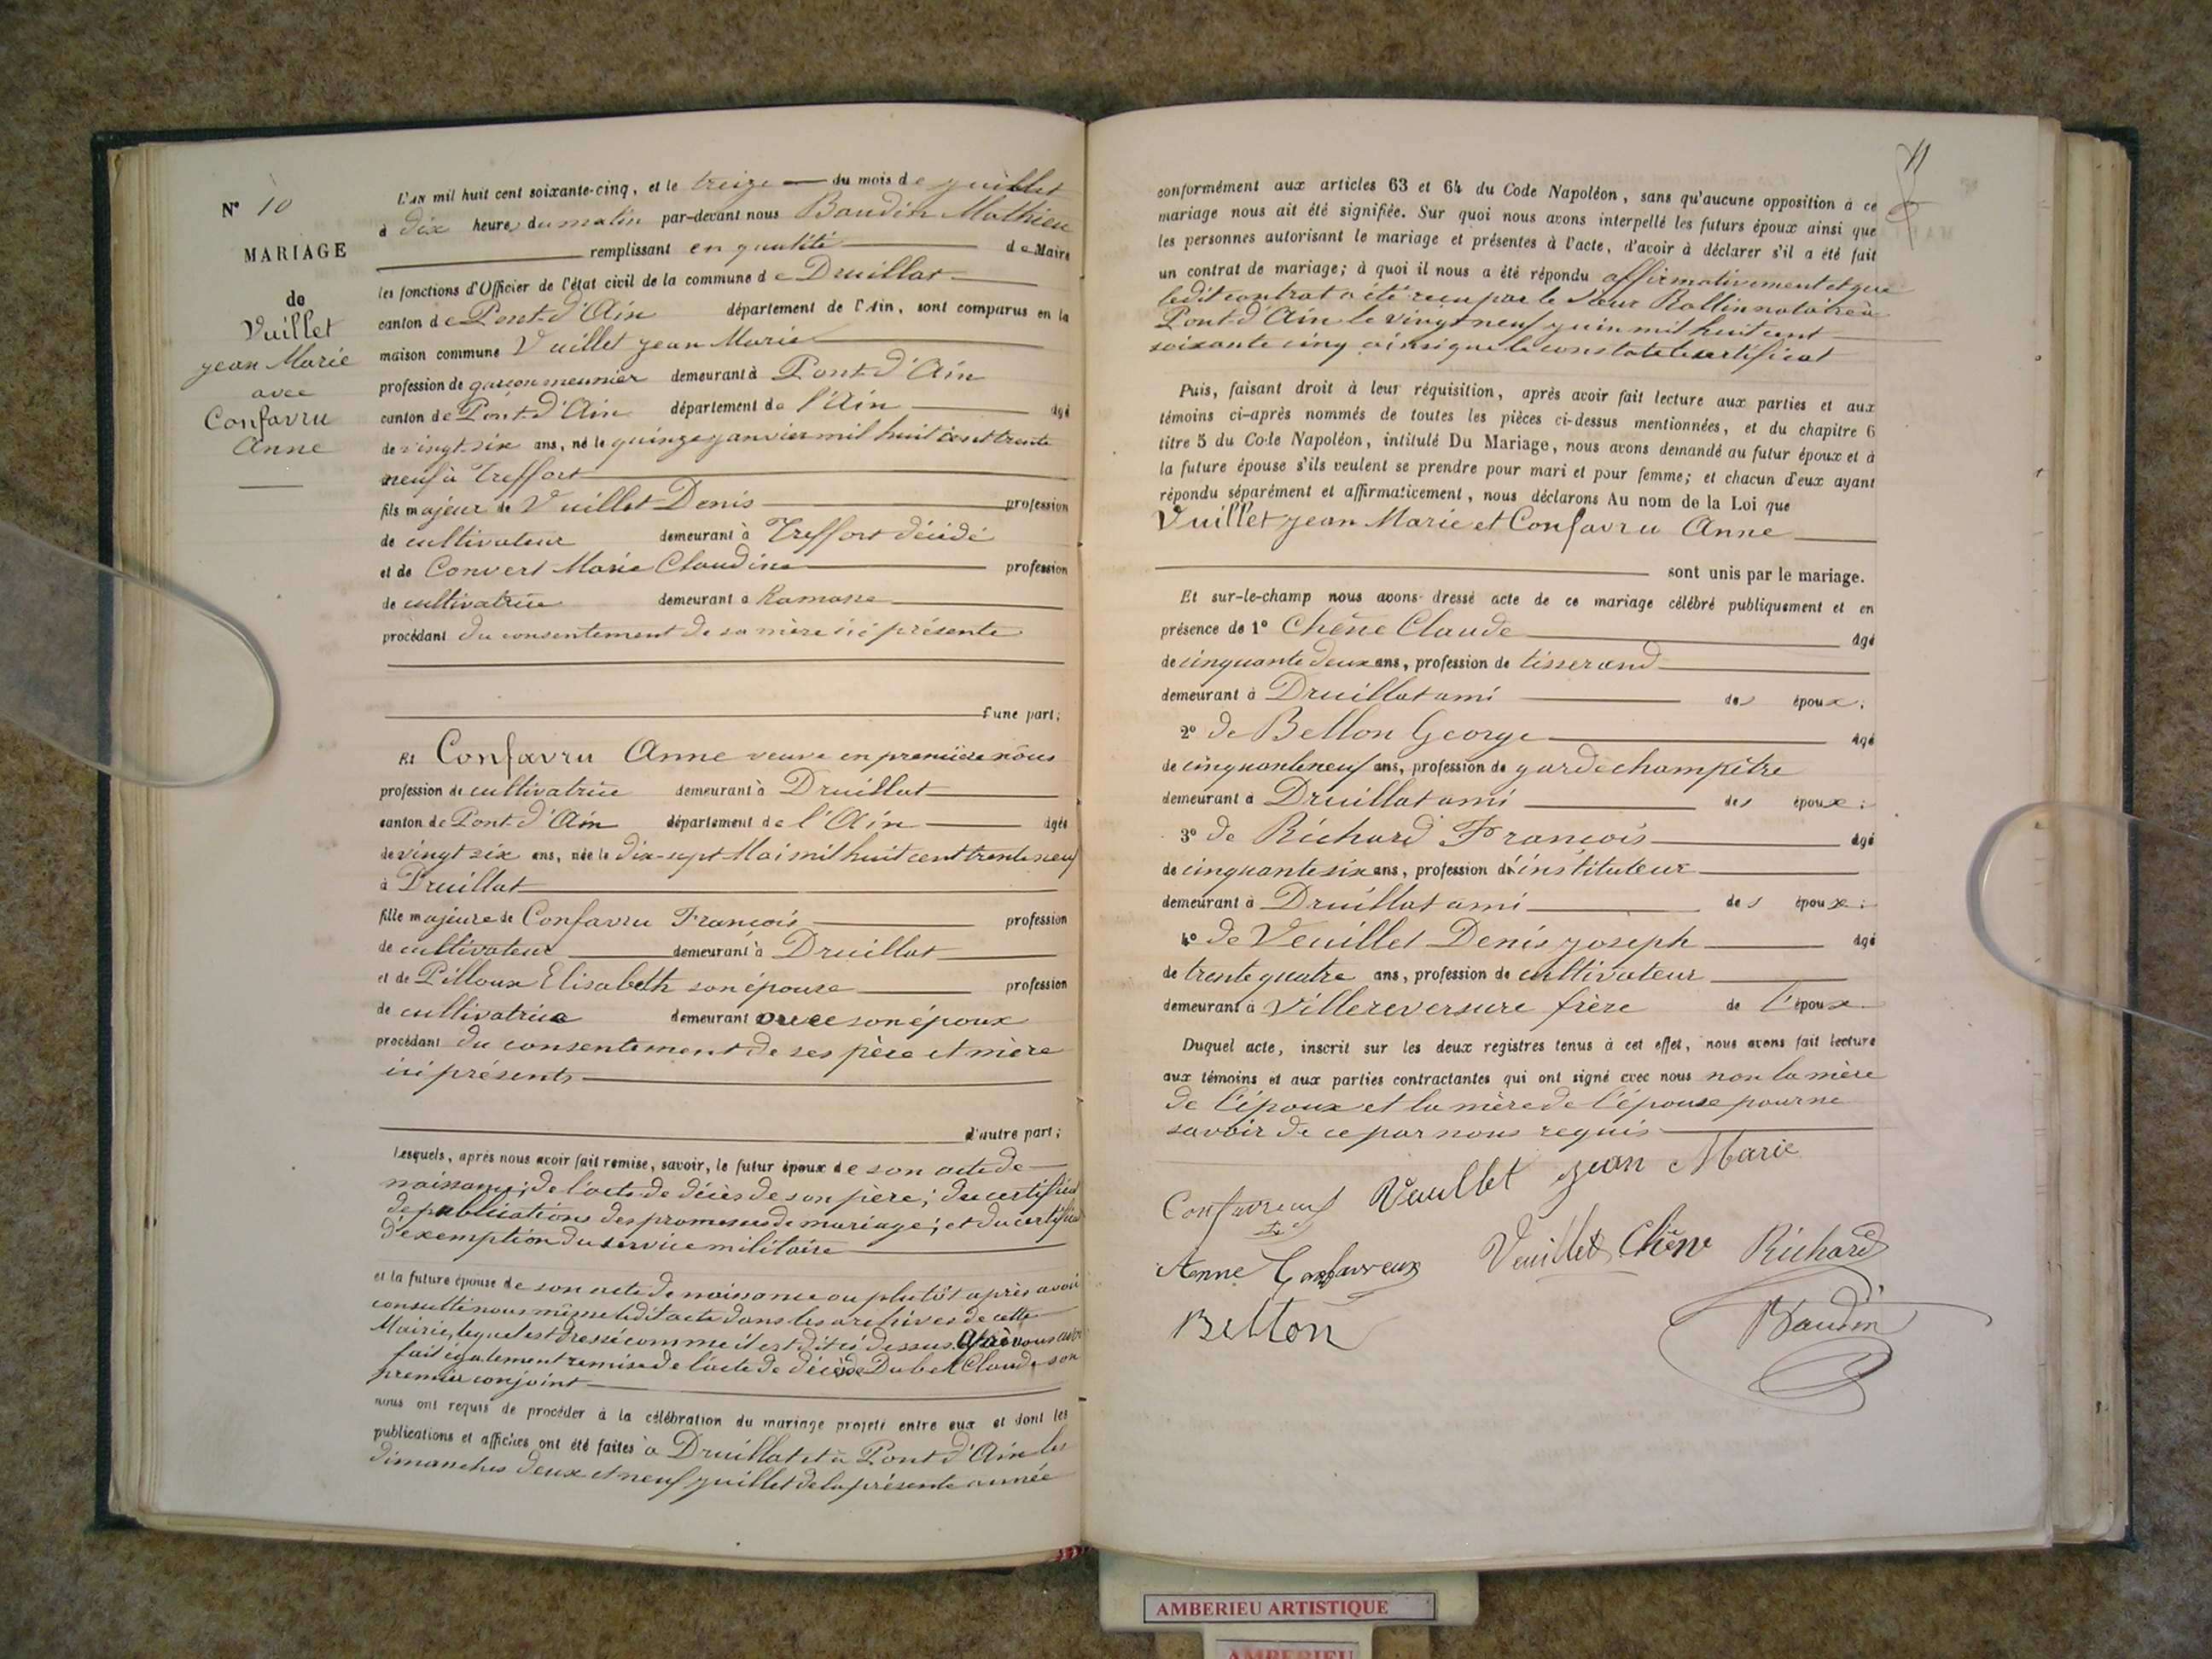 N° 10
MARIAGE
de
Vuillet
jean Marie
avec
Confavru
Anne
L'AN mil huit cent soixante-cinq, et le treize du mois de juillet
à dix heures du matin par-devant nous Baudin Mathieu
remplissant en qualité de Maire
les fonctions d'Officier de l'état civil de la commune de Druillat
canton de Pont-d'Ain département de l'Ain, sont comparus en la
maison commune Vuillet jean Marie
profession de garçon meunier demeurant à Pont-d'Ain
canton de Pont-d'Ain département de l'Ain âgé
de vingt-six ans, né le quinze janvier mil huit cent trente
neuf à Treffort
fils majeur de Vuillet Denis profession
de cultivateur demeurant à Treffort décédé
et de Convert Marie Claudine profession
de cultivatrice demeurant à Ramasse
procédant du consentement de sa mère ici présente
d'une part;
Et Confavru Anne veuve en première nôces
profession de cultivatrice demeurant à Druillat
canton de Pont-d'Ain département de l'Ain âgée
de vingt six ans, née le dix-sept Mai mil huit cent trente neuf
à Druillat
fille majeure de Confavru François profession
de cultivateur demeurant à Druillat
et de Pilloux Elisabeth son épouse profession
de cultivatrice demeurant avec son époux
procédant du consentement de ses père et mère
ici présents
d'autre part;
Lesquels, après nous avoir fait remise, savoir, le futur époux de son acte de
naissance; de l'acte de décès de son père; du certificat
de publications des promesses de mariage; et du certificat
d'exemption du service militaire
et la future épouse de son acte de naissance ou plutôt après avoir
consulté nous même ledit acte dans les archives de cette
Mairie, lequel est dressé comme il est dit ci dessus. Après nous avoir
fait également remise de l'acte de décès de Dubet Claude son
premier conjoint
nous ont requis de procéder à la célébration du mariage projeté entre eux et dont les
publications et affiches ont été faites à Druillat et à Pont d'Ain les
dimanches deux et neuf juillet de la présente année
11
conformément aux articles 63 et 64 du Code Napoléon, sans qu'aucune opposition à ce
mariage nous ait été signifiée. Sur quoi nous avons interpellé les futurs époux ainsi que
les personnes autorisant le mariage et présentes à l'acte, d'avoir à déclarer s'il a été fait
un contrat de mariage; à quoi il nous a été répondu affirmativement et que
ledit contrat a été reçu par le Sieur Rollin notaire à
Pont-d'Ain le vingt neuf juin mil huit cent
soixante cinq ainsi que le constate le certificat
Puis, faisant droit à leur réquisition, après avoir fait lecture aux parties et aux
témoins ci-après nommés de toutes les pièces ci-dessus mentionnées, et du chapitre 6
titre 5 du Code Napoléon, intitulé Du Mariage, nous avons demandé au futur époux et à
la future épouse s'ils veulent se prendre pour mari et pour femme; et chacun d'eux ayant
répondu séparément et affirmativement, nous déclarons Au nom de la Loi que
Vuillet jean Marie et Confavru Anne
sont unis par le mariage.
Et sur-le-champ nous avons dressé acte de ce mariage célébré publiquement et en
présence de 1° Chêne Claude âgé
de cinquante deux ans, profession de tisserand
demeurant à Druillat ami des époux;
2° de Bellon George âgé
de cinquante neuf ans, profession de garde champêtre
demeurant à Druillat ami des époux;
3° de Richard François âgé
de cinquante six ans, profession d'instituteur
demeurant à Druillat ami des époux;
4° de Veuillet Denis joseph âgé
de trente quatre ans, profession de cultivateur
demeurant à Villereversure frère de l'époux
Duquel acte, inscrit sur les deux registres tenus à cet effet, nous avons fait lecture
aux témoins et aux parties contractantes qui ont signé avec nous non la mère
de l'époux et la mère de l'épouse pour ne
savoir de ce par nous requis
Confavreux Veullet jean Marie
Anne Confavreux Veuillet Chêne Richard
Bellon Baudin
AMBERIEU ARTISTIQUE
AMBERIEU